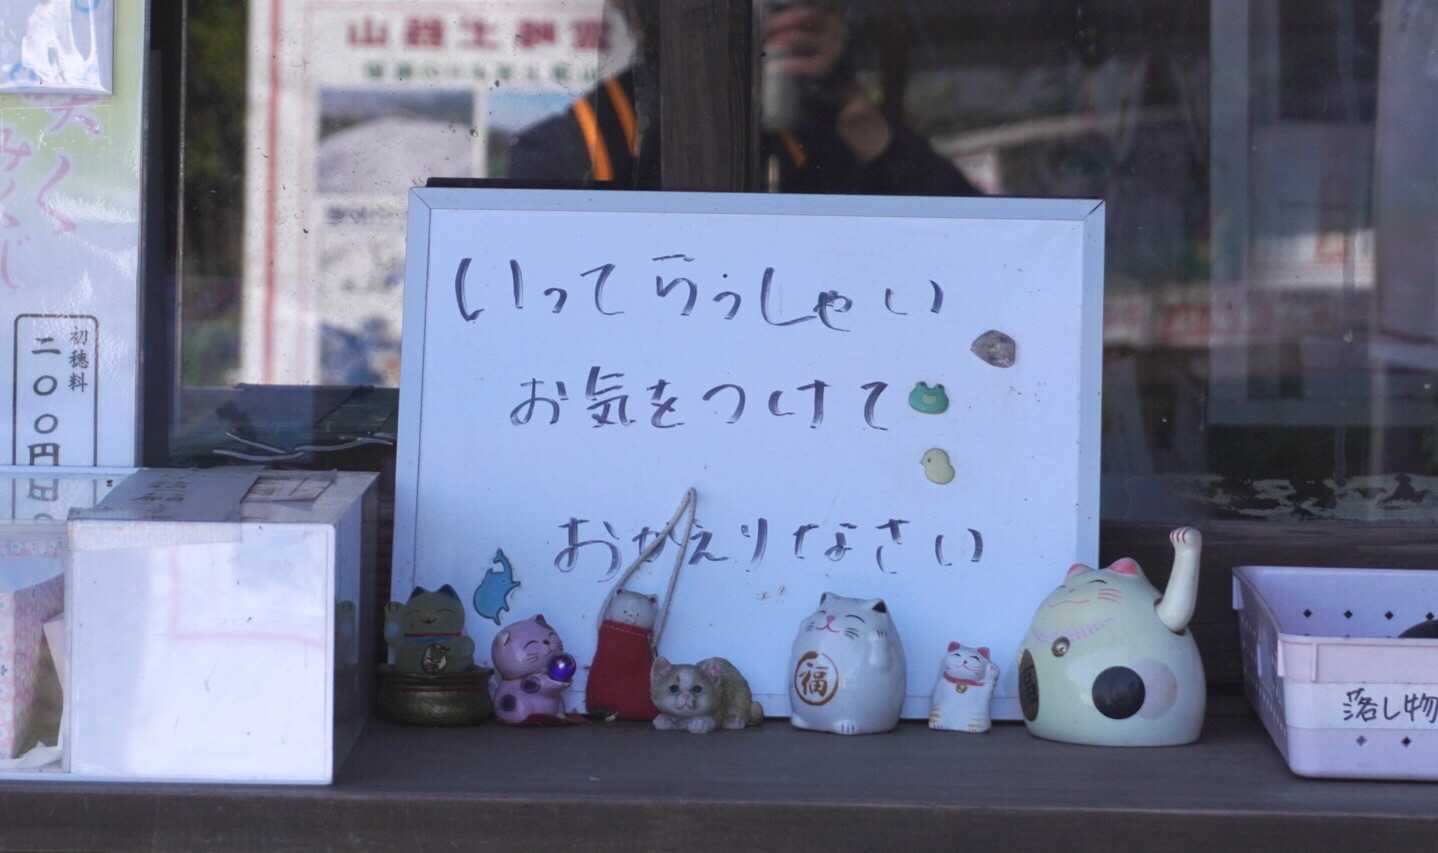 いってらっしゃい
お気をつけて
おかえりなさい
みくじ
初穂料
二〇〇円
福
落し物